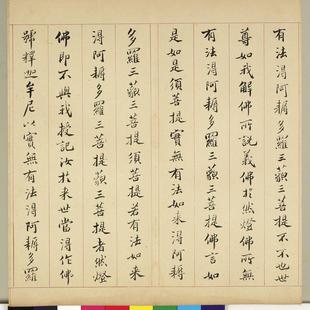 有法得阿耨多羅三藐三菩提不不也世
尊如我解佛所說義佛於然燈佛所無
有法得阿耨多羅三藐三菩提佛言如
是如是須菩提實無有法如來得阿耨
多羅三藐三菩提須菩提若有法如來
得阿耨多羅三藐三菩提者然燈
佛即不與我授記汝於來世當得作佛
號釋迦牟尼以實無有法得阿耨多羅